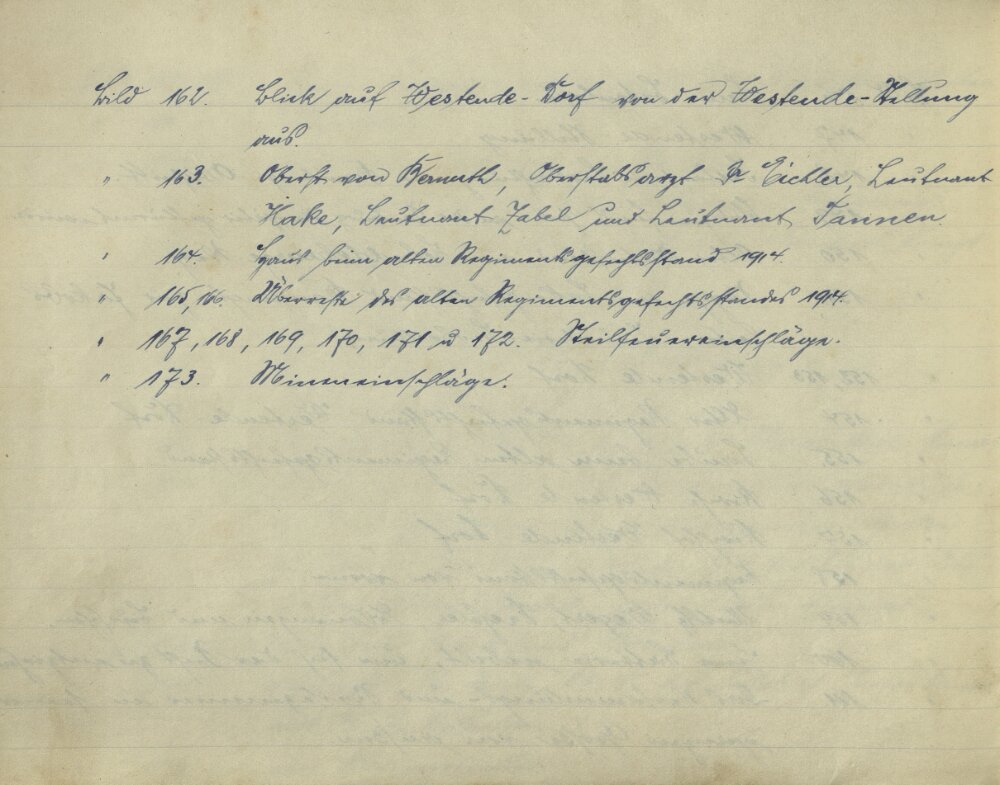 Bild 162. Blick auf Westende-Dorf von der Westende-Stellung
aus.
" 163. Oberst von Bernuth, Oberstabsarzt Dr Eichler, Leutnant
Hake, Leutnant Zabel und Leutnant Tannen.
" 164. Haus beim alten Regimentsgefechtsstand 1914.
" 165, 166. Überreste des alten Regimentsgefechtsstandes 1914.
" 167, 168, 169, 170, 171 u 172. Steilfeuereinschläge.
" 173. Mineneinschläge.